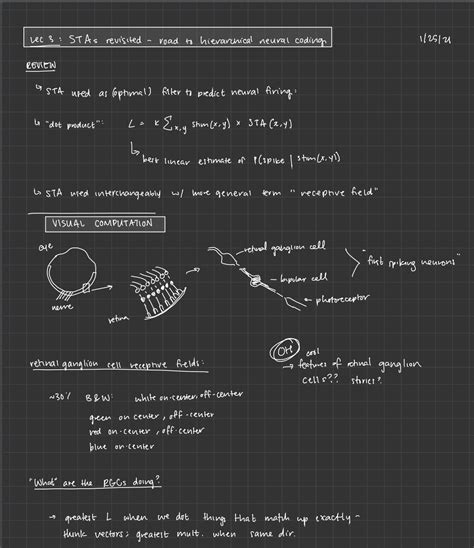 Lec 3: STAs revisited - road to hierarchical neural coding
1/25/21
REVIEW
↳ STA used as (optimal) filter to predict neural firing:
↳ "dot product": L = K Σx,y stim(x,y) × STA(x,y)
↳ best linear estimate of P(spike | stim(x,y))
↳ STA used interchangeably w/ more general term "receptive field"
VISUAL COMPUTATION
eye
nerve
retina
retinal ganglion cell
bipolar cell
photoreceptor
"first spiking neurons"
retinal ganglion cell receptive fields:
OH cool
→ features of retinal ganglion
cells?? stories?
~30% B&W: white on-center, off-center
green on center, off-center
red on-center, off-center
blue on-center
"What" are the RGCs doing?
→ greatest L when we dot thing that match up exactly -
think vectors; greatest mult. when same dir.